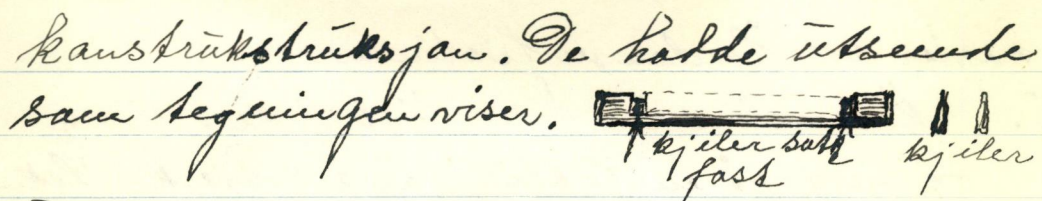 konstrukstruksjon. De hadde utseende
som tegningen viser.
kjiler satt
fast
kjiler